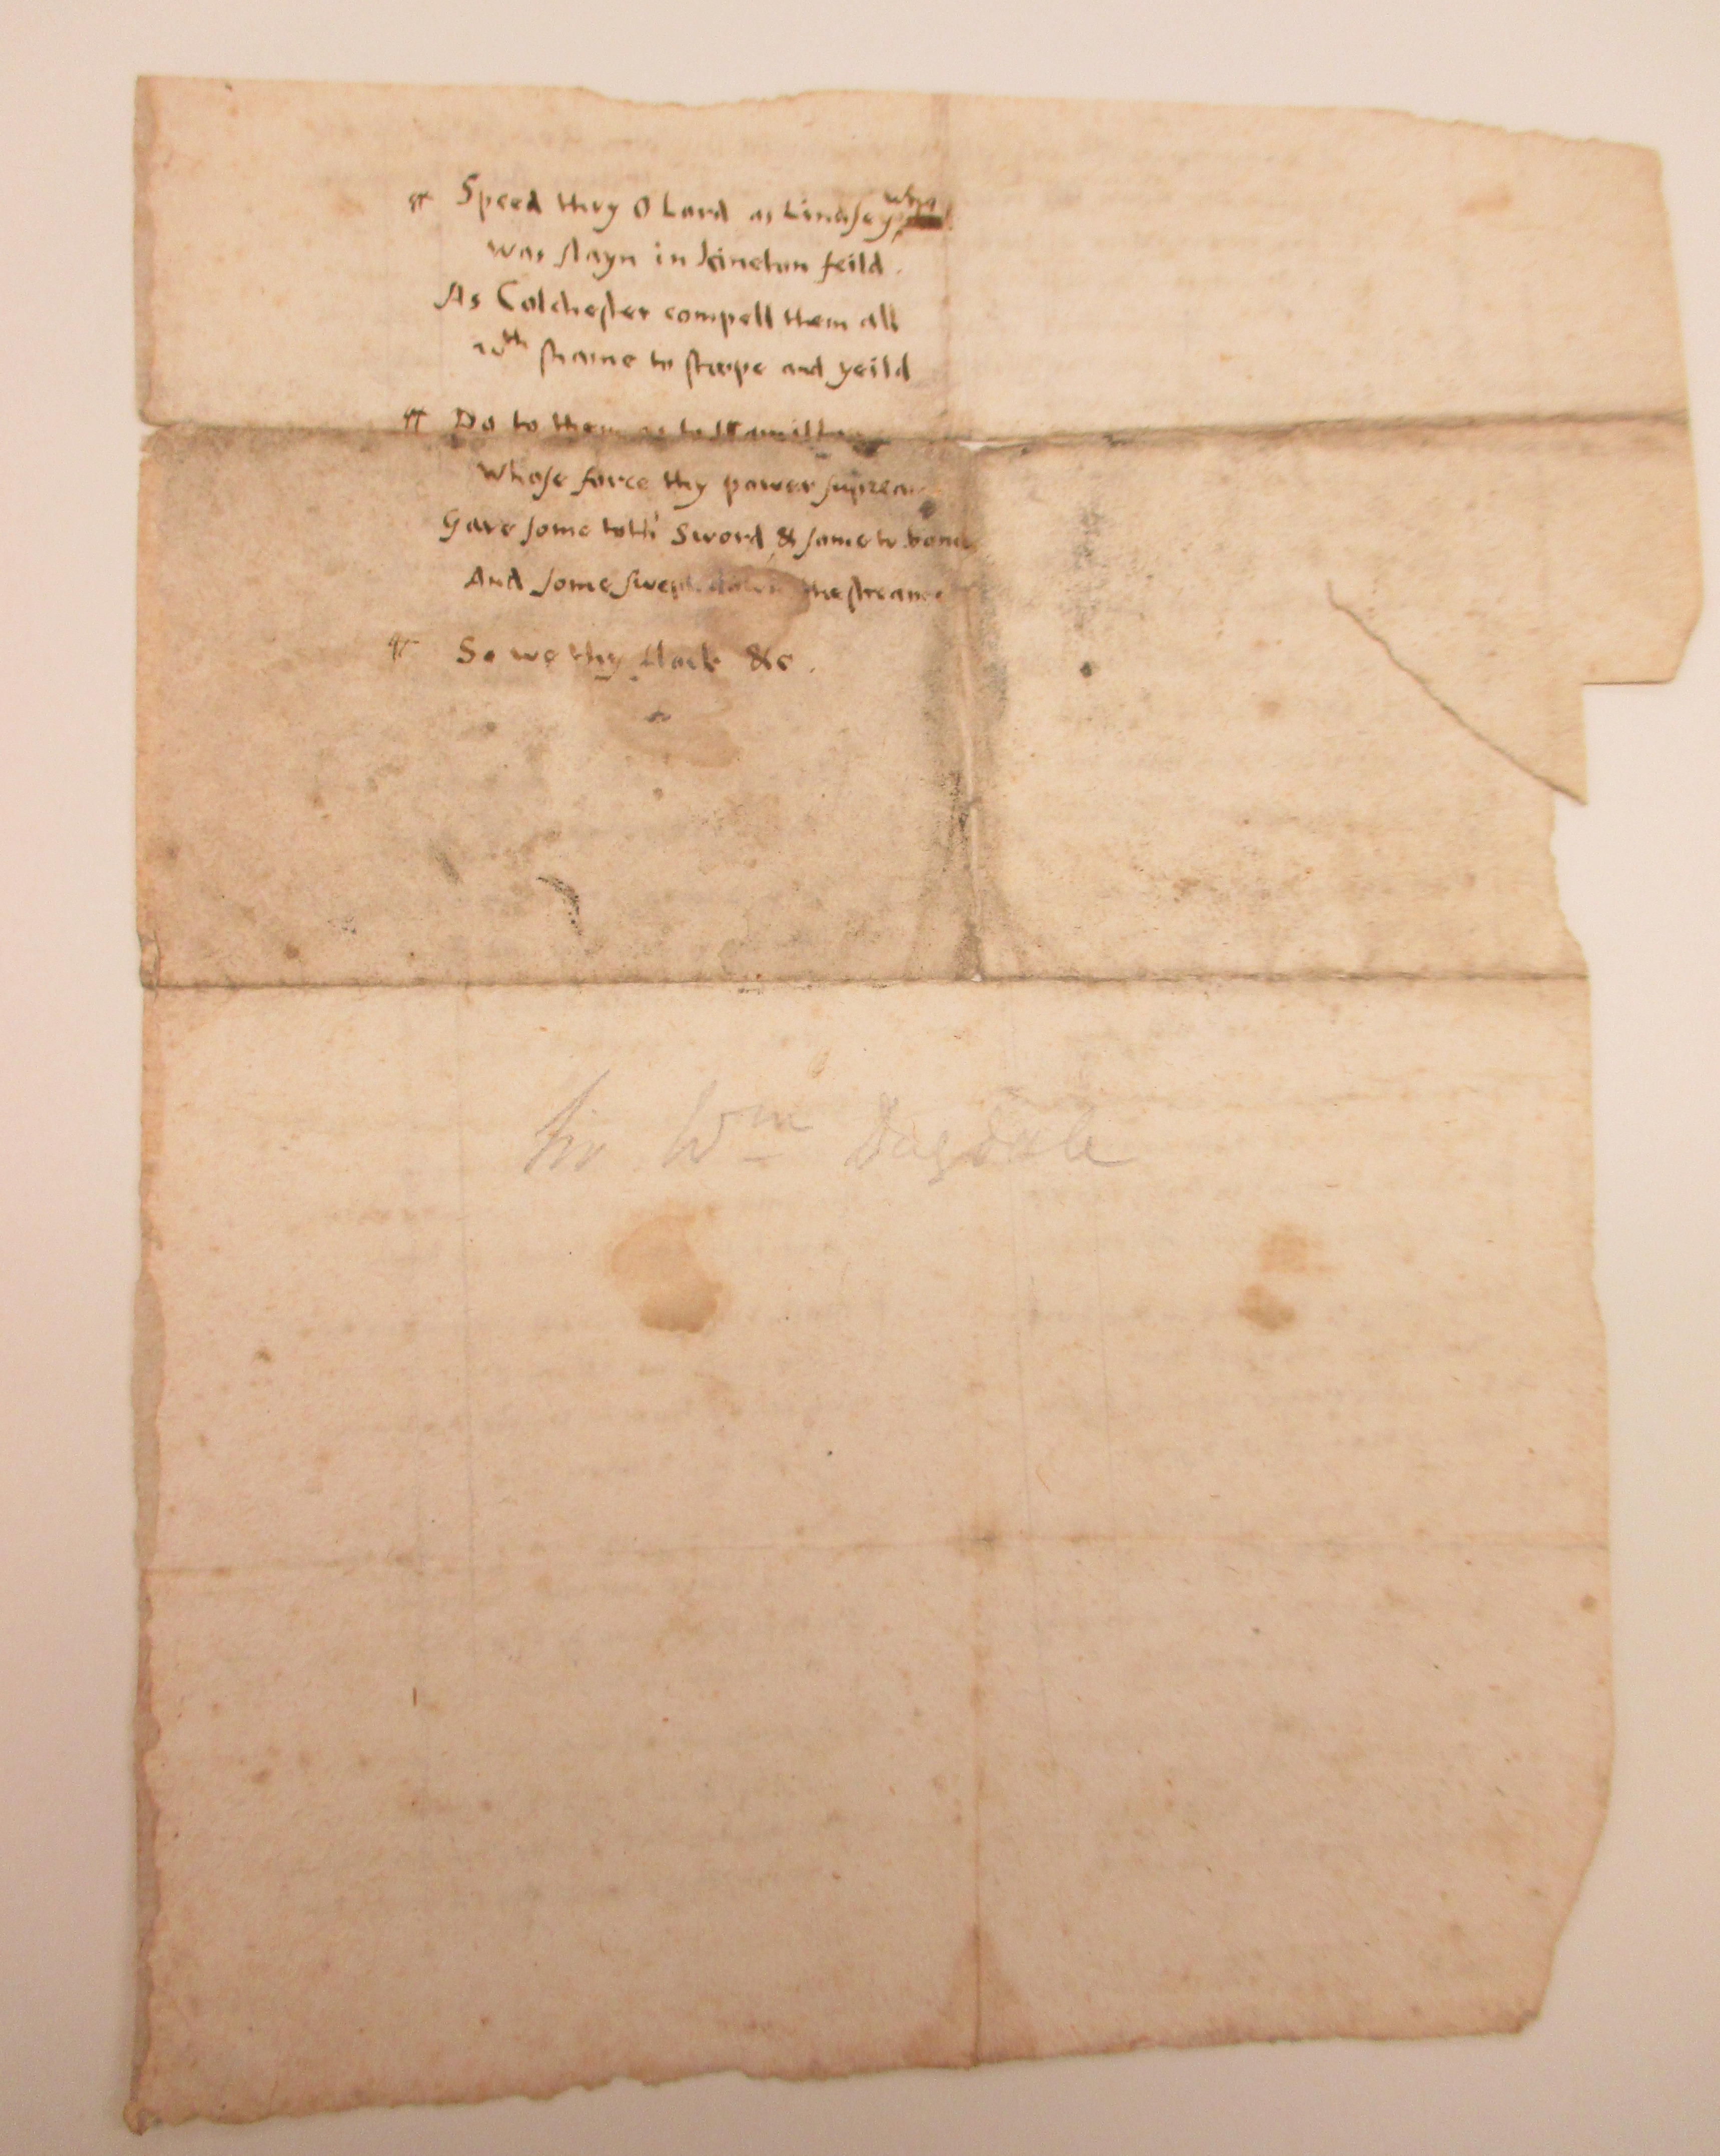 ¶ Speed they O Lord as Lindsey who
was slayn in Kineton feild.
As Colchester compell them all
wth shame to stoope and yeild
¶ Do to them as to Hamilton
Whose force thy power supream
Gave some toth' Sword & some to bonds
And some swept down the streame
¶ So we thy flock &c.
Sir Wm Dugdale